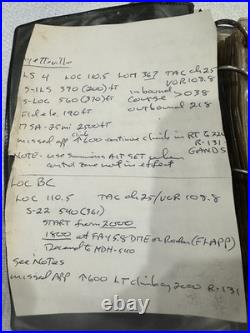 LS 4 LOC 110.5 LOM 367 TAC ch 25
VOR 108.8
S-ILS 390 (200) ft inbound
S-LOC 560 (370) ft course > 038
Field e 190 ft outbound 218
MSA-25mi 2500 ft
missed app ↑600 continue climb in RT
R-131
NOTE: use ALT SET when GANDS
control zone not in effect
LOC BC
LOC 110.5 TAC ch 25/VOR 108.8
S-22 540 (361)
START from 2000
1800 at FAY 5.8 DME or Radar (FLAPP)
Descend to MDH-540
See Notes
missed App ↑600 LT climb 2000 R-131